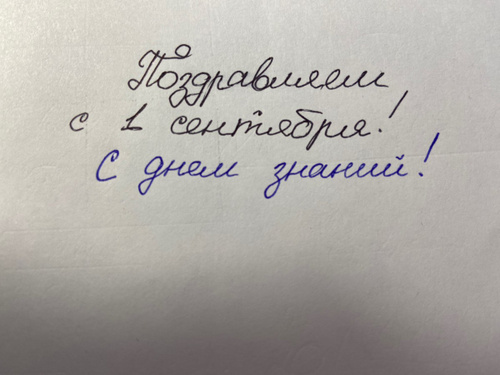 Поздравляем
с 1 сентября!
С днем знаний!